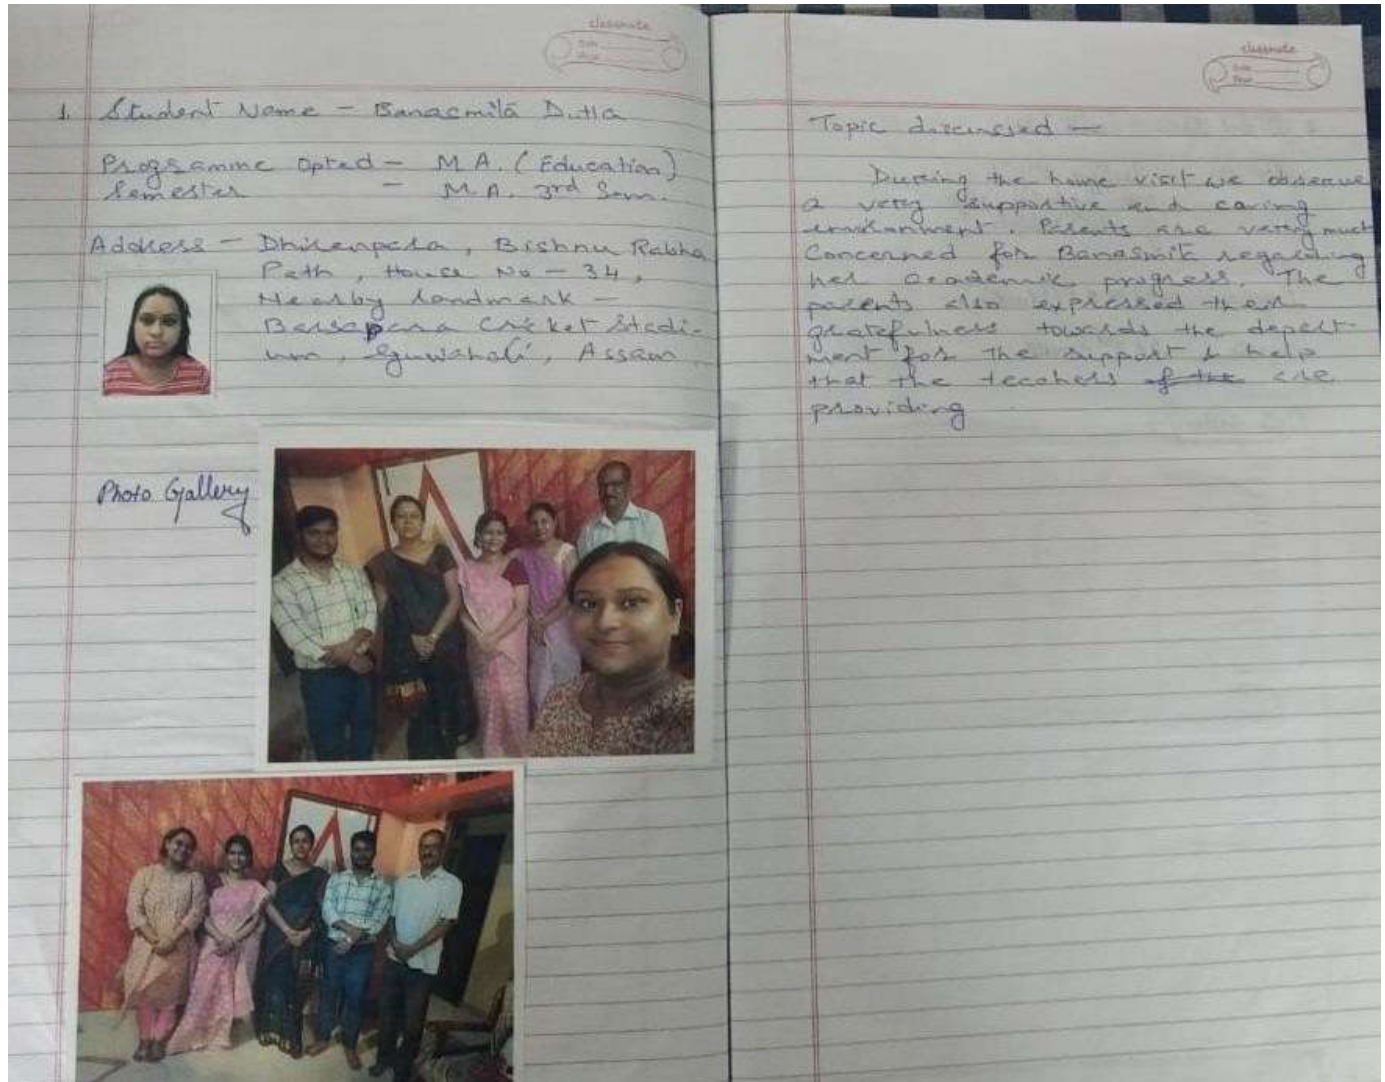 classmate
Date
Page
1. Student Name - Banasmita Dutta
Programme Opted - M.A. (Education)
Semester - M.A. 3rd Sem.
Address - Dhirenpara, Bishnu Rabha
Path, House No - 34,
Nearby landmark -
Barsapara Cricket Stadi-
um, Guwahati, Assam
Photo Gallery
classmate
Date
Page
Topic discussed -
During the home visit we observe
a very supportive and caring
environment. Parents are very much
Concerned for Banasmita regarding
her academic progress. The
parents also expressed their
gratefulness towards the depart-
ment for the support & help
that the teachers of the are
providing